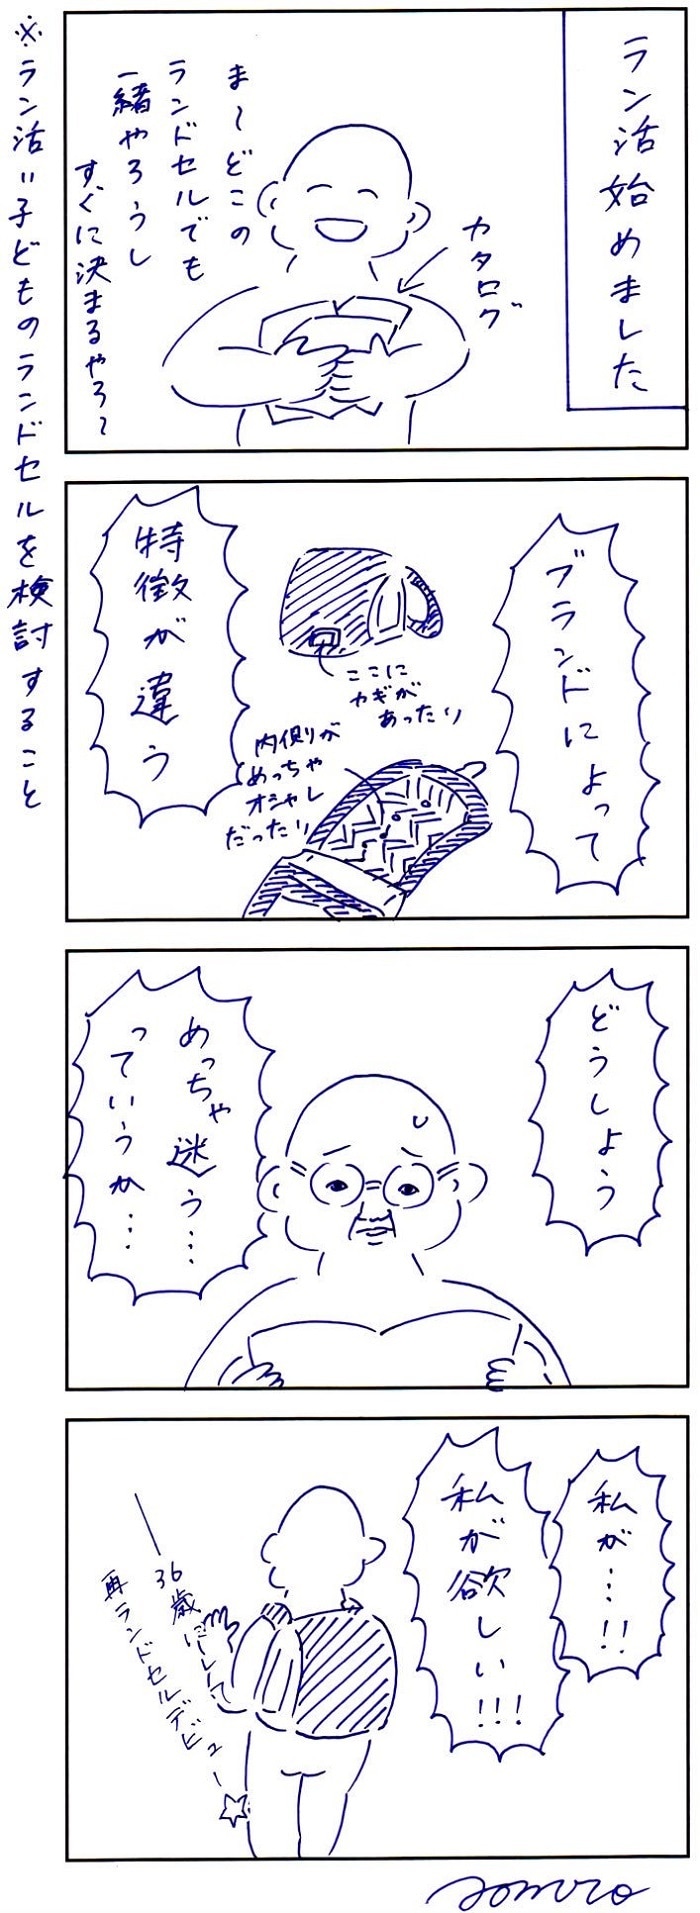 ラン活始めました
カタログ
ま～どこの
ランドセルでも
一緒やろうし
すぐに決まるやろ～
ブランドによって
ここに
カギが
あったり
内側が
めっちゃ
オシャレ
だったり
特徴が違う
どうしよう
めっちゃ迷う…
っていうか…
私が…!!
私が欲しい!!!
36歳にして
再ランドセルデビュー☆
※ラン活＝子どものランドセルを検討すること